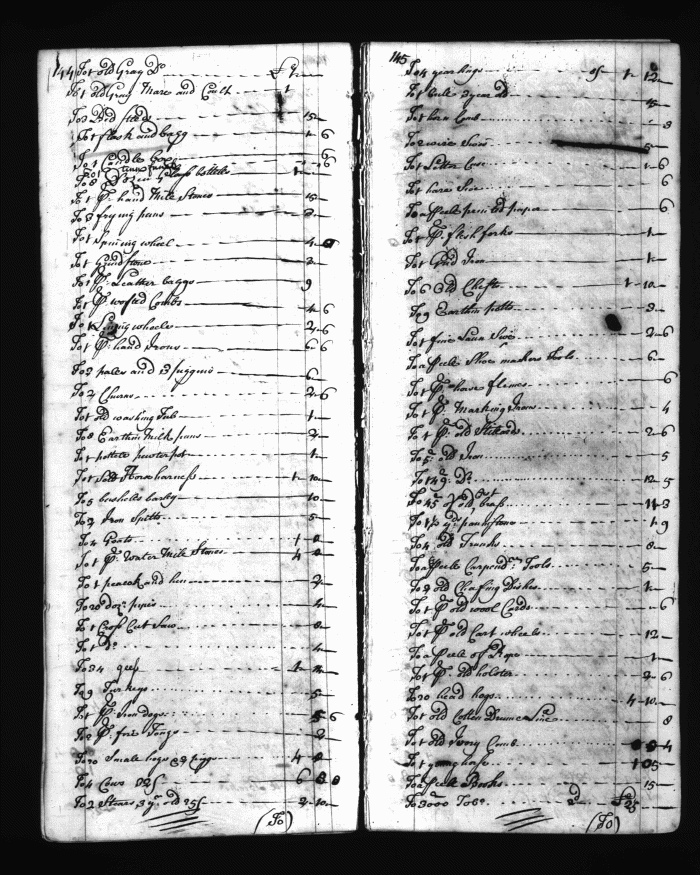 144 To 1 old Gray Do £ 1 —
To 1 old Gray Mare and Coult 1
To 3 Bed steeds 15 —
To 1 flask and bagg 1 6
To 1 Candles Box 6
To 8 Dozen glass bottles 1 —
To 1 pr hand Mile Stones 15 —
To 3 frying pans 3 —
To 1 Spining wheel 4
To 1 Grindstone 2 —
To 1 pr Leather baggs 9
To 1 pr wosted Combs 4 6
To Spinig wheels 2 6
To 1 pr hand Irons 6 6
To 3 pales and 3 piggins 6 —
To 2 Churns 2 6
To 1 old washing Tub 1 —
To 8 Earthin Milk pans 2 —
To 1 pottele pewter pot 1 —
To 1 Sett Horse harness 1 10 —
To 5 bousholes barley 10 —
To 2 Iron Spitts 5 —
To 4 Goats 1 8
To 1 pr Water Mile Stones 4
To 1 peacock and hen 2 —
To 20 doz: pipes 4 —
To 1 Cross Cut Saw 8 —
To 1 Do 4 —
To 34 geese 4 —
To 9 Turkeys 5 —
To 1 pr Iron dogs 5 6
To 2 pr fire Tongs 2 —
To 20 Small hogs & piggs 4
To 4 Cows 32/ 6 8
To 2 Stears 3 yr old 25/ 2 10 —
(To)
145
To 4 yearlings 8/ 1 12 —
To 1 bule 3 year old 15 —
To 1 horn Comb 3
To 2 wire Sives 5 —
To 1 Setter Case 1 6
To 1 hare Sive 6
To a Peele pented paper 6
To 1 pr flesh forks 1 —
To 1 Grid Iron 1 —
To 6 Old Chests 1 10 —
To 9 Earthin potts 3 —
To 1 fine Saun Sive 2 6
To a Peele Shoe makers Tools 6 —
To 1 pr horse flemes 6
To 1 pr Marking Irons 4
To 1 pr old Stiliards 2 6
To old Iron 5
To 149: Do 12 5
To 45 of old brass 11 3
To 1 1 9
To 4 old Trunks 8 —
To a Peele Carpendrs Tools 5 —
To 3 old Chafing Dishes 1 —
To 1 pr old wool Cards 6
To 1 pr old Cart wheels 12 —
To a Peele of Rope 1 —
To 1 pr old holster 2 6
To 20 head hogs 4 10 —
To 1 old Line 8
To 1 old Ivory Comb 4
To 1 1 05
To a Peele Books 15 —
To 3000 Tobo 2d £ 25
(To)